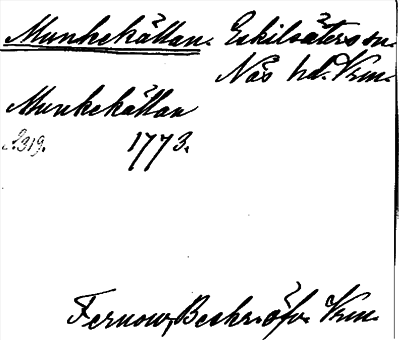 Munkekällan. Eskilsäters sn.
Näs hd. Vrm.
Munkekällan
S. 319. 1773.
Fernow, Beskr. öfv. Vrm.